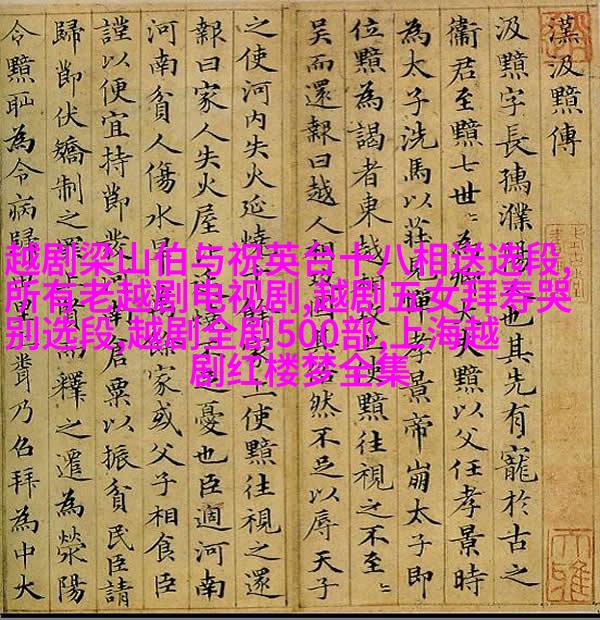 漢汲黯傳
汲黯字長孺濮陽人也其先有寵於古之
衛君至黯七世〻為卿大夫黯以父任孝景時
為太子洗馬以莊見憚孝景帝崩太子即
位黯為謁者東越相攻上使黯往視之不至〻
吳而還報曰越人相攻固其俗然不足以辱天子
之使河内失火延燒千餘家上使黯往視之還
報曰家人失火屋比延燒不足憂也臣適河南
河南貧人傷水旱萬餘家或父子相食臣
謹以便宜持節發河南倉粟以振貧民臣請
歸節伏矯制之罪上賢而釋之遷為滎陽
令黯恥為令病歸田里上賁乃召拜為中大
越剧梁山伯与祝英台十八相送选段,
所有老越剧电视剧,越剧五女拜寿哭
别选段,越剧全剧500部,上海越
剧红楼梦全集